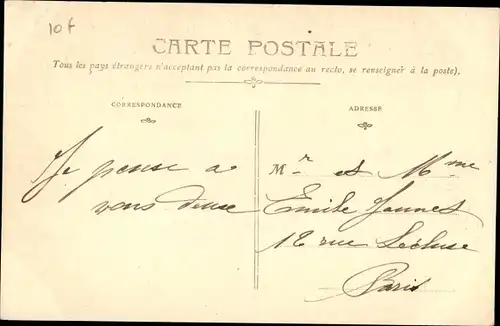 10f
CARTE POSTALE
Tous les pays étrangers n'acceptant pas la correspondance au recto, se renseigner à la poste).
CORRESPONDANCE
Je pense a
vous deuse
ADRESSE
Mr et Mme
Emile Jaunet
12 rue Lecluse
Paris